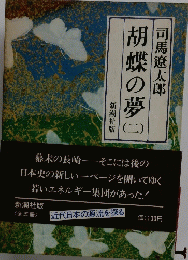 司馬遼太郎
胡蝶の夢(二)
新潮社版
幕末の長崎―そこには後の
日本史の新しい一ページを開いてゆく
若いエネルギー集団があった!
新潮社版
近代日本の源流を探る